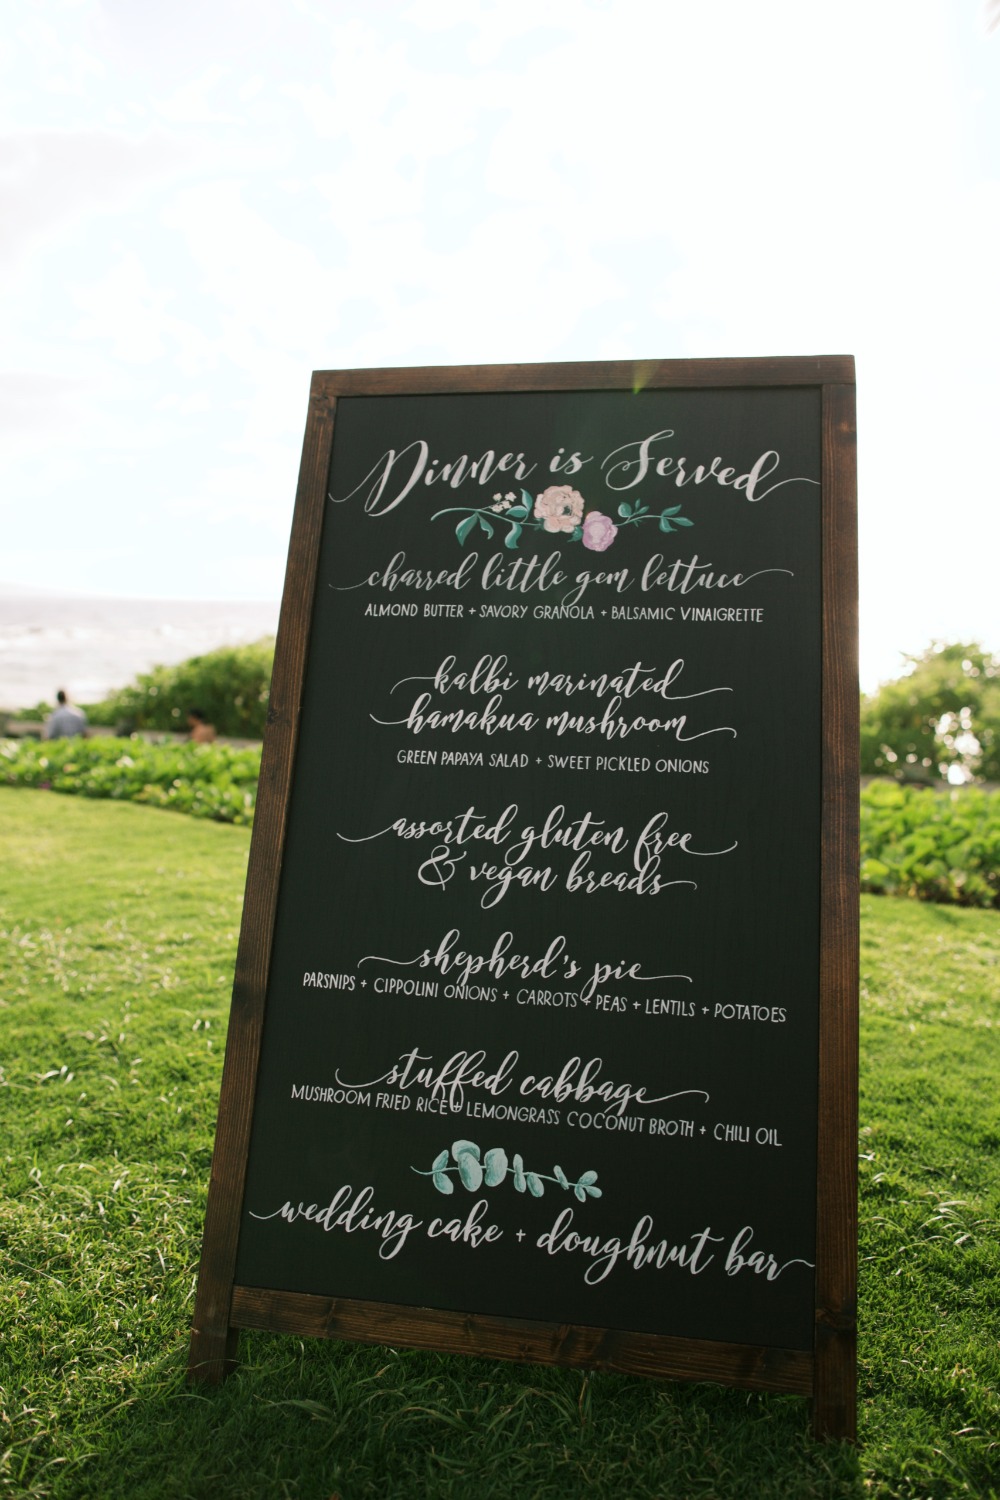 Dinner is Served
charred little gem lettuce
ALMOND BUTTER + SAVORY GRANOLA + BALSAMIC VINAIGRETTE
kalbi marinated
hamakua mushroom
GREEN PAPAYA SALAD + SWEET PICKLED ONIONS
assorted gluten free
& vegan breads
shepherd's pie
PARSNIPS + CIPPOLINI ONIONS + CARROTS + PEAS + LENTILS + POTATOES
stuffed cabbage
MUSHROOM FRIED RICE + LEMONGRASS COCONUT BROTH + CHILI OIL
wedding cake + doughnut bar